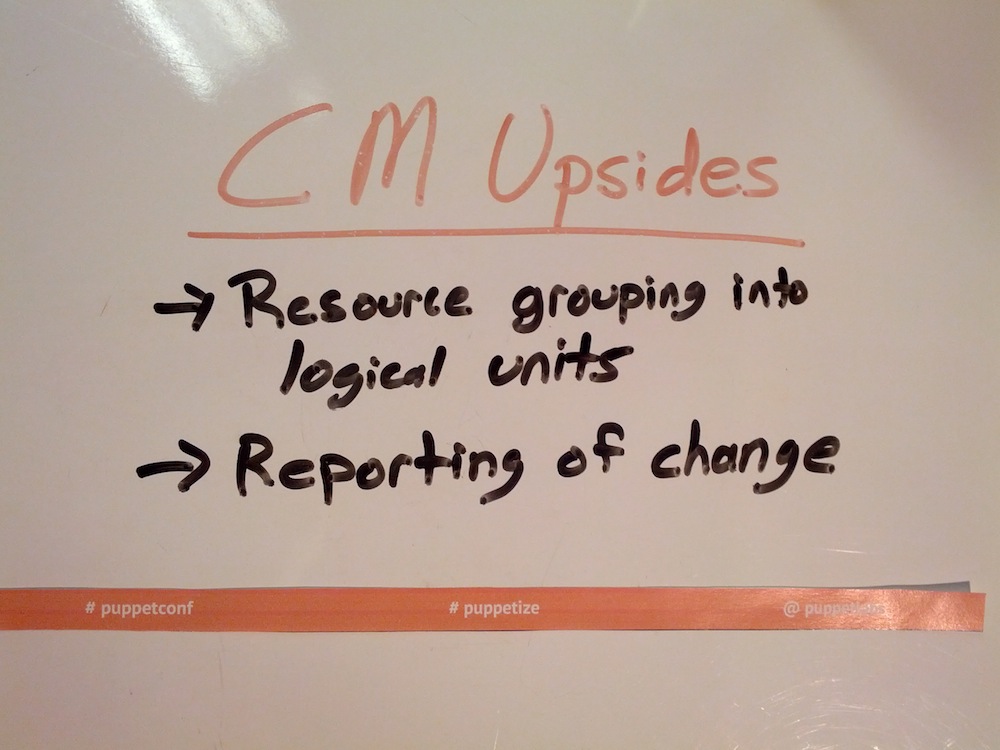 CM Upsides
→ Resource grouping into
logical units
→ Reporting of change
# puppetconf # puppetize @ puppetlabs